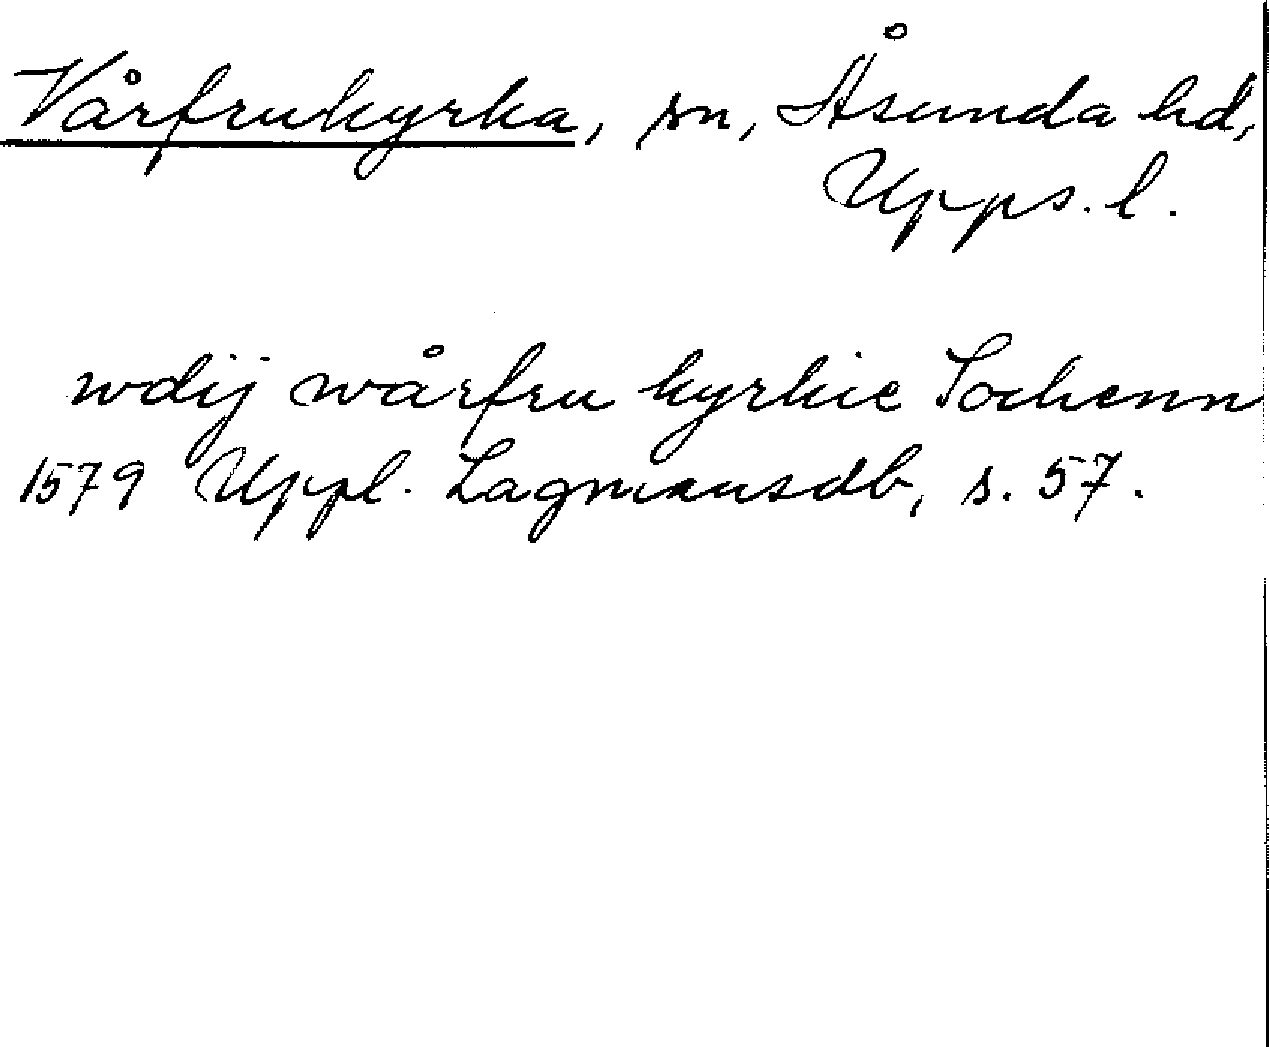 Vårfrukyrka, sn, Åsunda hd,
Upps. l.
wdij wårfru kyrkie Sochenn
1579 Uppl. Lagmansdb, s. 57.